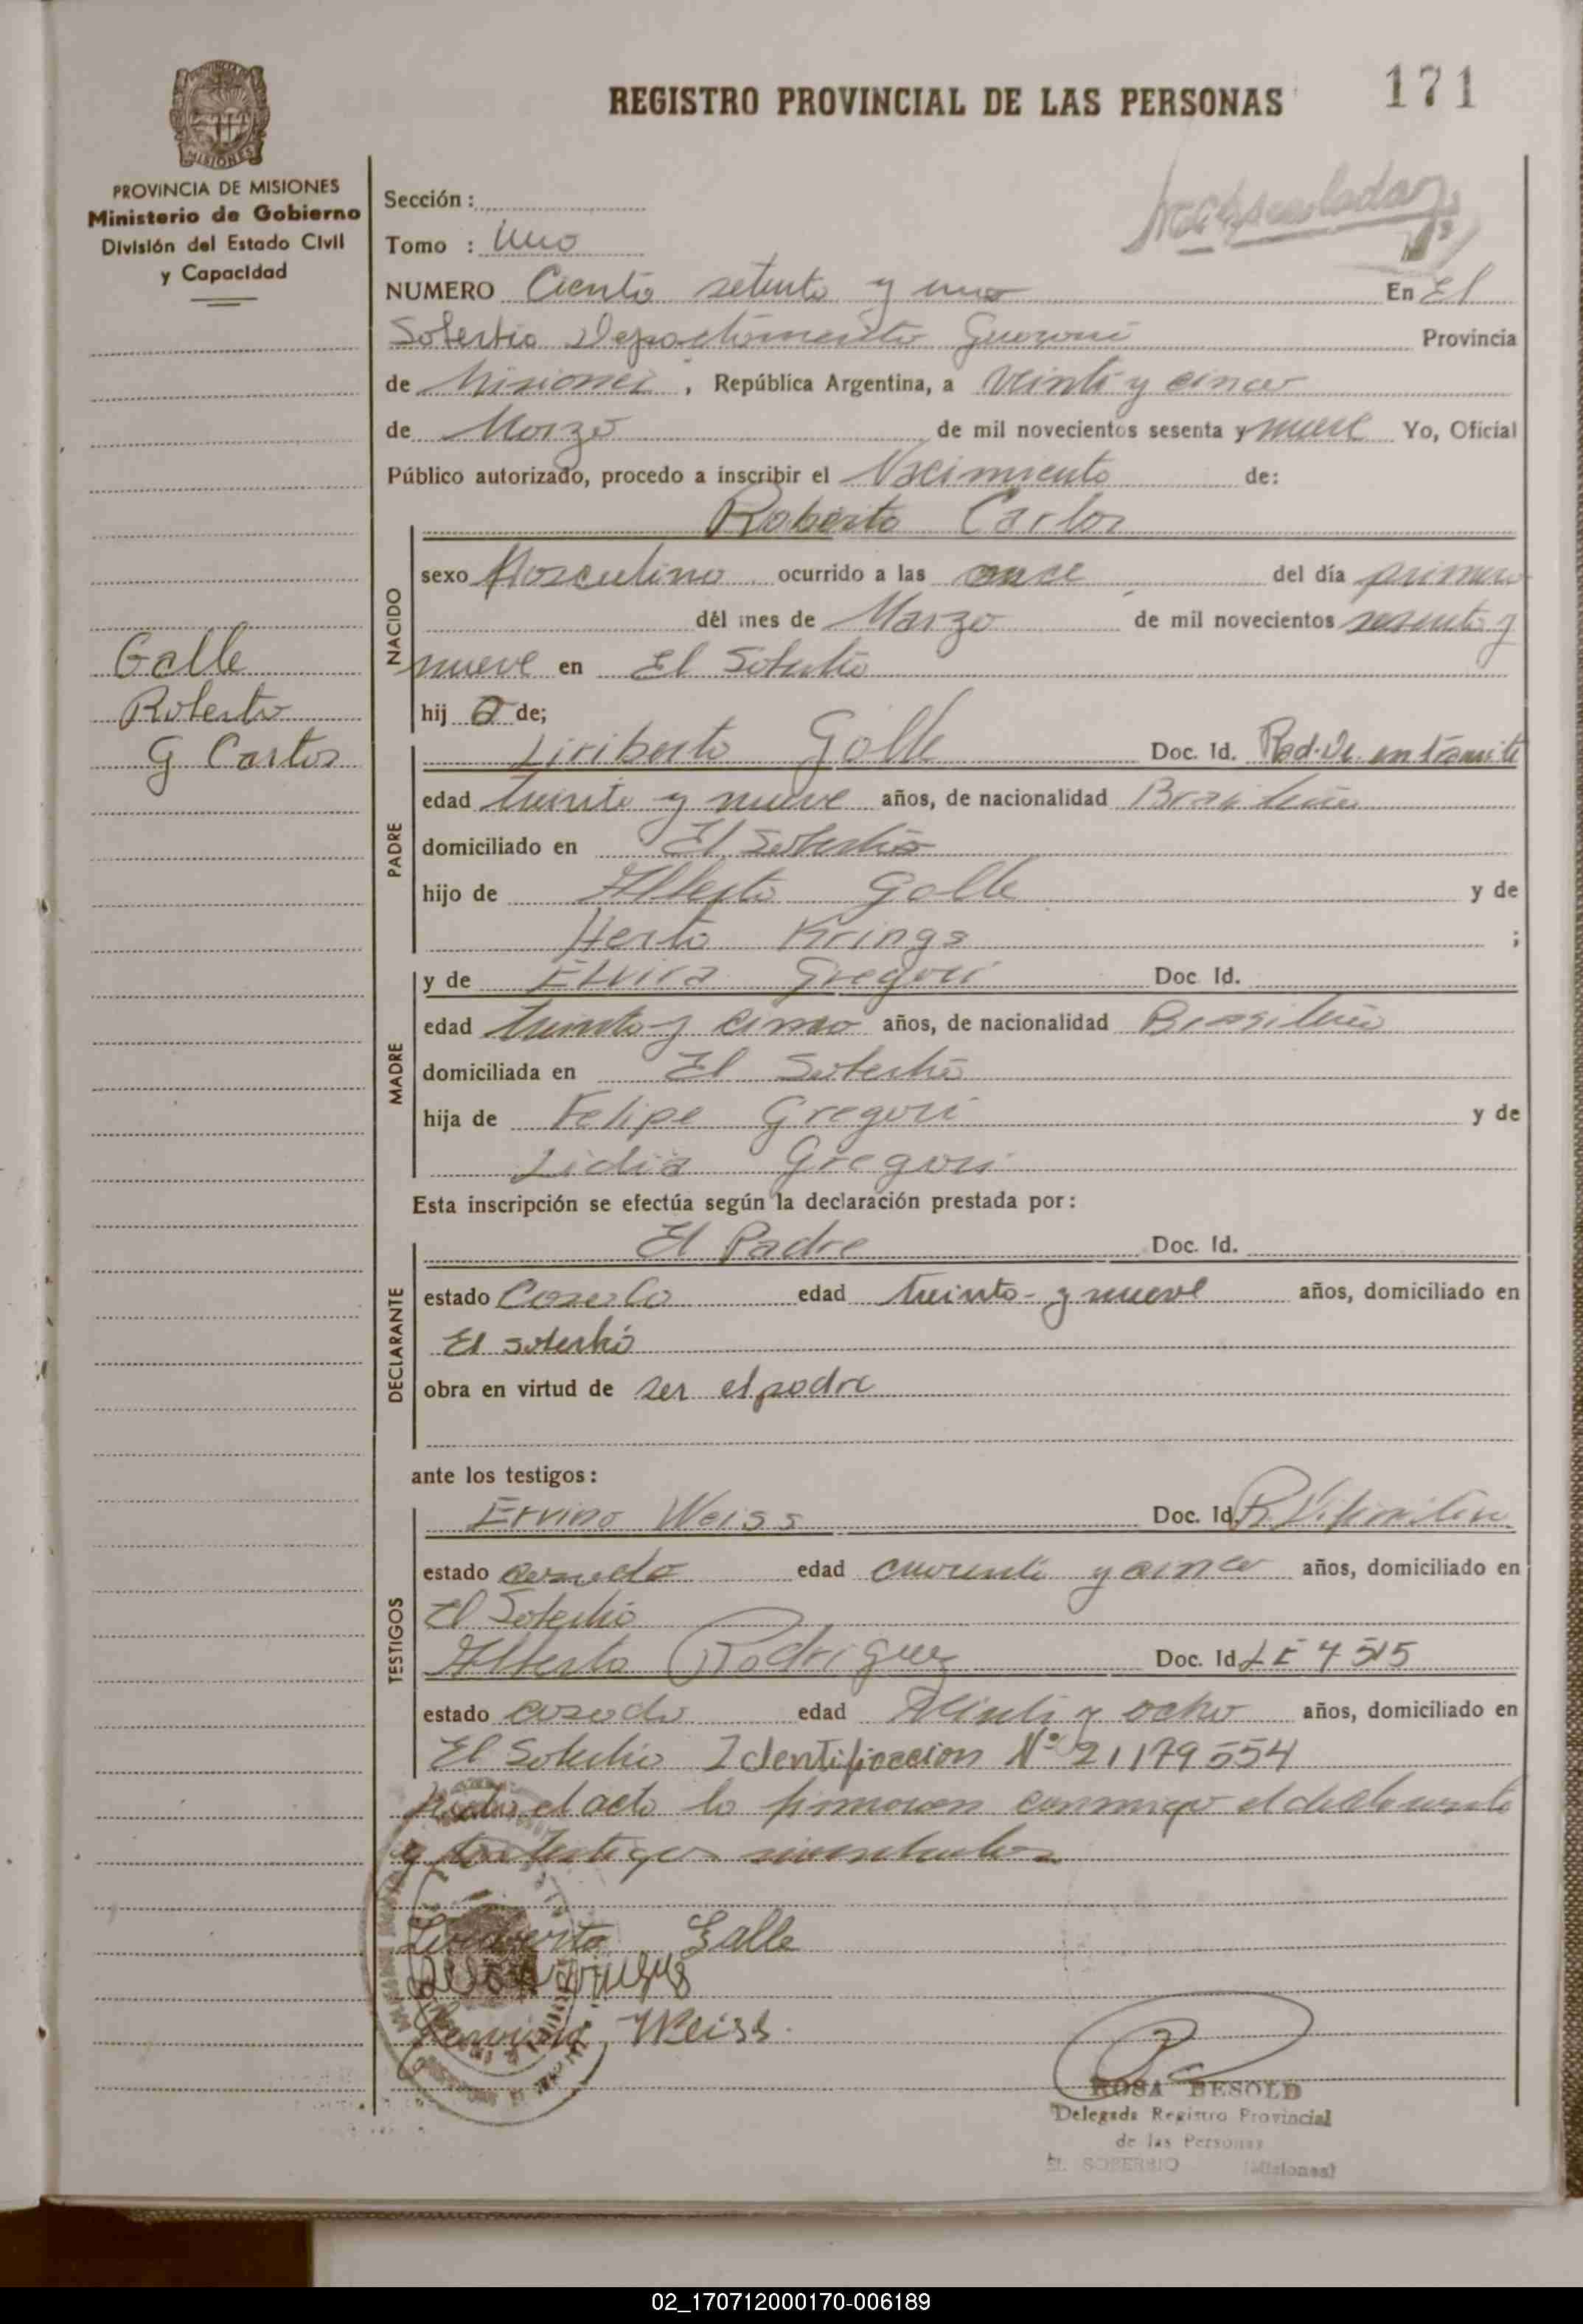 REGISTRO PROVINCIAL DE LAS PERSONAS
171
MISIONES
PROVINCIA DE MISIONES
Ministerio de Gobierno
División del Estado Civil
y Capacidad
Sección :
Tomo : Uno
NUMERO Ciento setenta y uno En El
Soberbio Departamento Guarani Provincia
de Misiones , República Argentina, a veinti y cinco
de Marzo de mil novecientos sesenta y nueve Yo, Oficial
Público autorizado, procedo a inscribir el Nacimiento de:
Roberto Carlos
NACIDO
sexo Masculino ocurrido a las once del día primero
del mes de Marzo de mil novecientos sesenta y
nueve en El Soberbio
hij o de;
Galle
Roberto
Carlos
PADRE
Liriberto Galle Doc. Id. Rad. en tramite
edad treinta y nueve años, de nacionalidad Brasileña
domiciliado en El Soberbio
hijo de Alberto Galle y de
Herta Krings ;
MADRE
y de Elvira Gregori Doc. Id.
edad treinta y cinco años, de nacionalidad Brasileña
domiciliada en El Soberbio
hija de Felipe Gregori y de
Lidia Gregori
Esta inscripción se efectúa según la declaración prestada por:
DECLARANTE
El Padre Doc. Id.
estado Casado edad treinta y nueve años, domiciliado en
El Soberbio
obra en virtud de ser el padre
ante los testigos:
TESTIGOS
Ervino Weiss Doc. Id.
estado casado edad cuarenta y cinco años, domiciliado en
El Soberbio
Alberto Rodriguez Doc. Id. LE 7 515
estado casado edad Veinti y ocho años, domiciliado en
El Soberbio Identificacion Nº 21179554
el acto lo firmaron conmigo el declarante
y los testigos
Liriberto Galle
Weiss
ROSA BESOLD
Delegada Registro Provincial
de las Personas
EL SOBERBIO (Misiones)
02_170712000170-006189